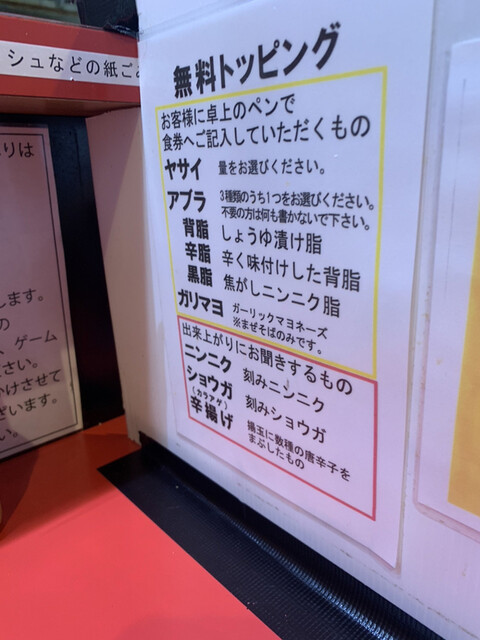 シュなどの紙ご
りは
します。
の
、ゲーム
さい。
かけさせて
ざいます。
い。
無料トッピング
お客様に卓上のペンで
食券へご記入していただくもの
ヤサイ 量をお選びください。
アブラ 3種類のうち1つをお選びください。
不要の方は何も書かないで下さい。
背脂 しょうゆ漬け脂
辛脂 辛く味付けした背脂
黒脂 焦がしニンニク脂
ガリマヨ ガーリックマヨネーズ
※まぜそばのみです。
出来上がりにお聞きするもの
ニンニク 刻みニンニク
ショウガ 刻みショウガ
(カラアゲ)
辛揚げ 揚玉に数種の唐辛子を
まぶしたもの